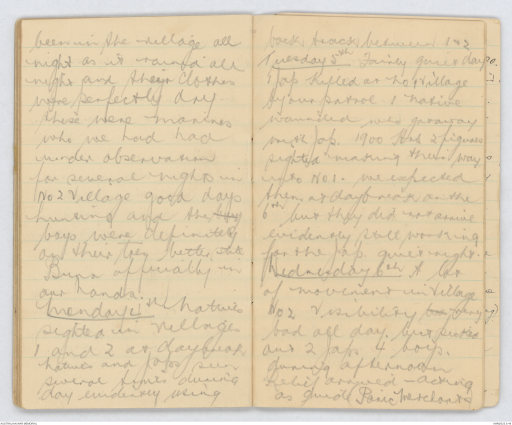 been in the village all
night as it rained all
night and their clothes
were perfectly dry
these were marines
who we had had
under observation
for several nights in
No 2 Village good days
hunting and the
boys were definitely
on their toes better state
Buna officially in
our hands.
Monday 4th Natives
sighted in villages
1 and 2 at daybreak
natives and Japs seen
several times during
day evidently using
back track between 1 & 2
Tuesday 5th Fairly quiet day
1 Jap killed at No 1 village
by our patrol. 1 native
wounded
with Jap. 1900 hrs 2 figures
sighted making their way
up to No 1. We expected
them at daybreak on the
6th but they did not arrive
evidently still working
for the Jap. quiet night.
Wednesday 6th A lot
of movement in village
No 2 Visibility very
bad all day. but picked
out 2 Japs 4 boys.
during afternoon
relief arrived - acting
as guide Panic Merchants